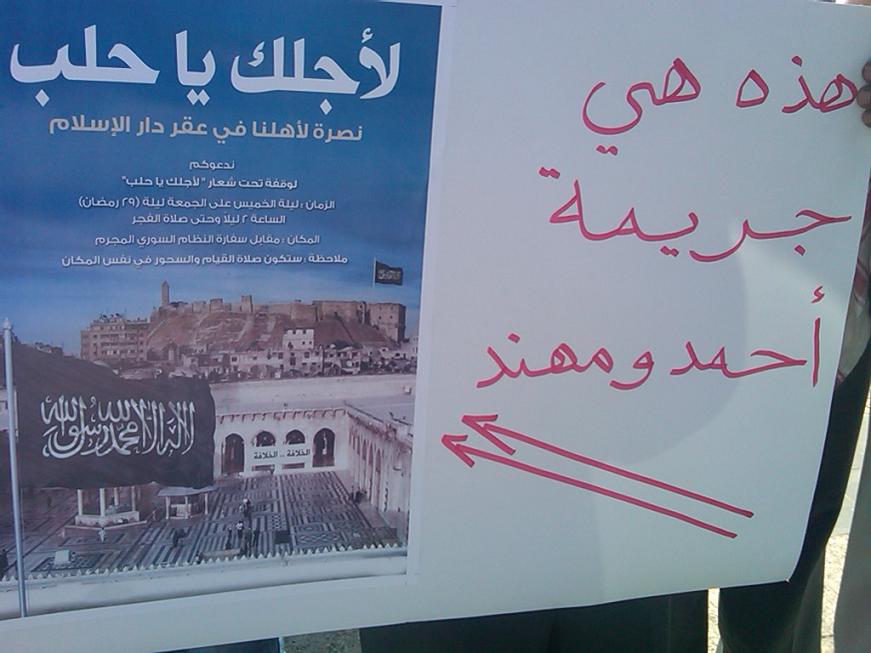 لأجلك يا حلب
نصرة لأهلنا في عقر دار الإسلام
ندعوكم
لوقفة تحت شعار "لأجلك يا حلب"
الزمان : ليلة الخميس على الجمعة ليلة (٢٩ رمضان)
الساعة ٢ ليلاً وحتى صلاة الفجر
المكان : مقابل سفارة النظام السوري المجرم
ملاحظة : ستكون صلاة القيام والسحور في نفس المكان
لا إله إلا الله محمد رسول الله
الخلافة .. الخلافة
هذه هي
جريمة
أحمد ومهند